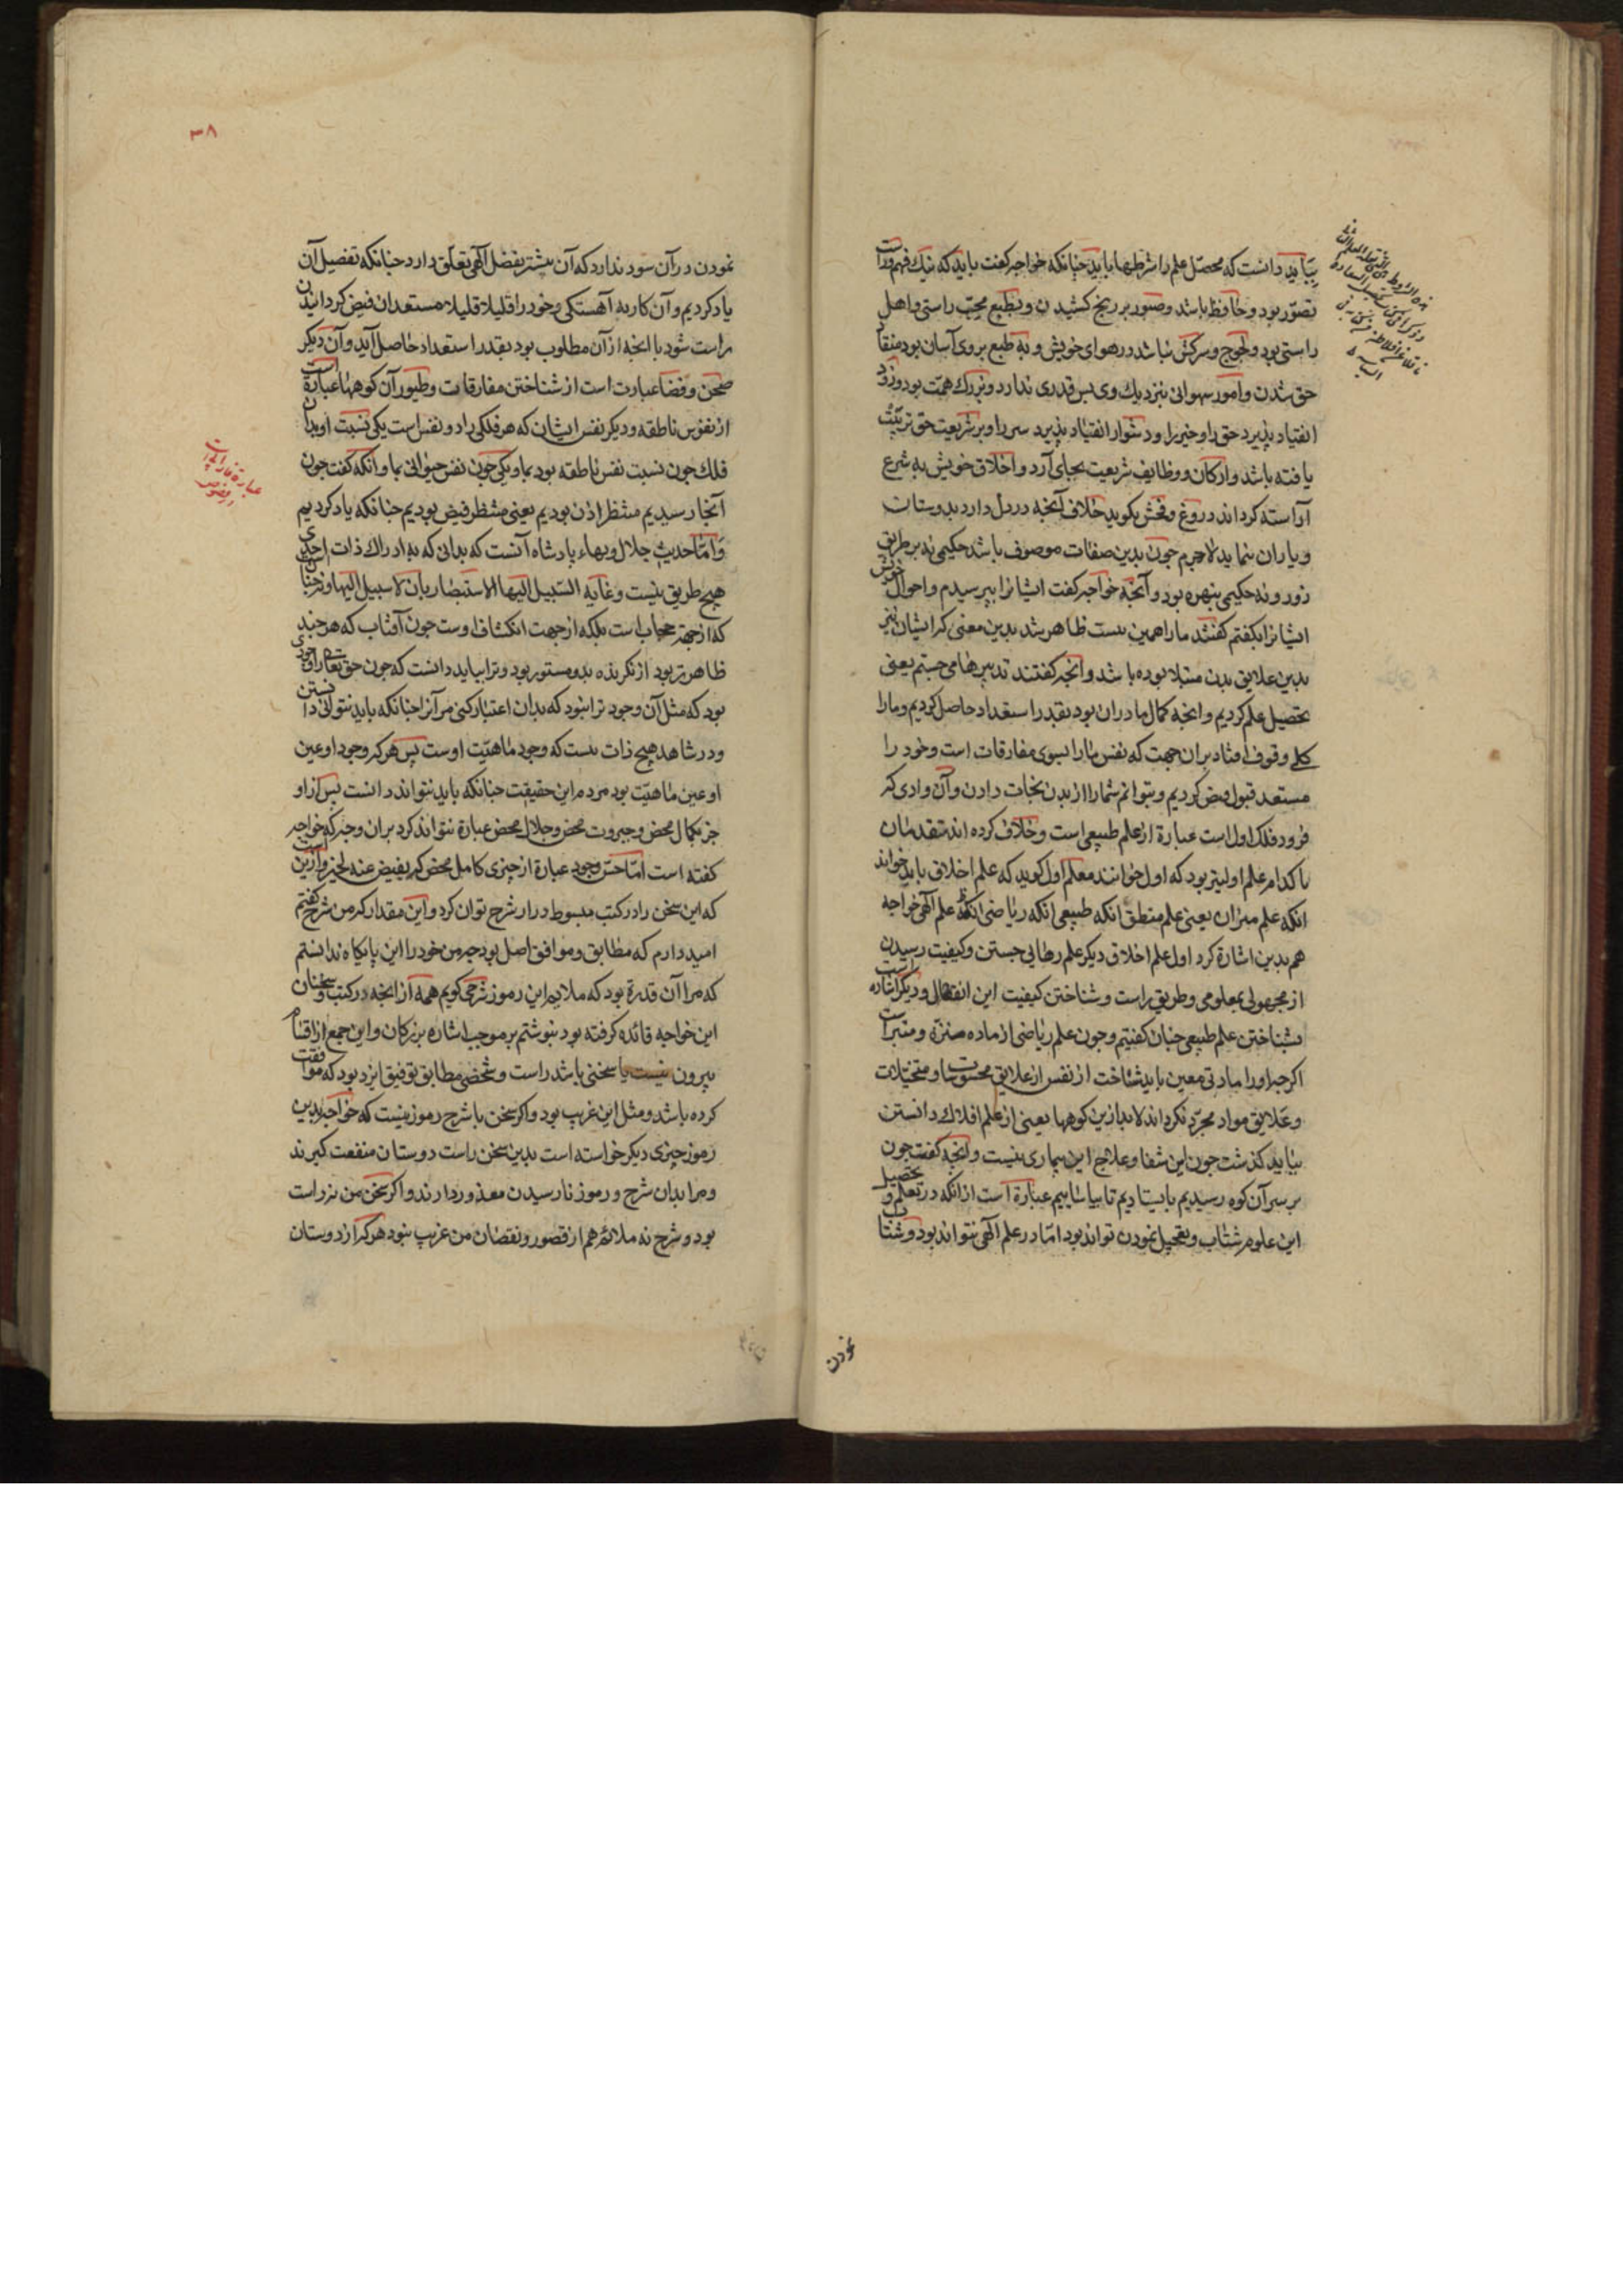 ببایذ دانست که محصّل علم را شرطها باید چنانکه خواجه کفت باید که نیک فهم و راست
تصوّر بود و حافظ باشد و صبور بر رنج کشیدن و بطبع محبّ راستی و اهل
راستی بود و لجوج و سرکش نباشد در هوای خویش و به طبع بر وی آسان بود منقاد
حق شدن و امور شهوانی بنزدیک وی بس قدری ندارد و بزرک همّت بود و زود
انقیاد پذیرد حق را و خیر را و دشوار انقیاد پذیرد سر را و بر شریعت حق تربیّت
یافته باشد و ارکان و وظایف شریعت بجای آرد و اخلاق خویش به شرع
آراسته کرداند دروغ و فحش نکوید خلاف آنچه در دل دارد بدوستان
و یاران ننماید لاجرم چون بدین صفات موصوف باشد حکیمی نه بر طریق
زور و نه حکیمی بنهره بود و آنچه خواجه کفت ایشانرا بپرسیدم و احوال خویش
ایشانرا بکفتم کفتند ما را همین بست ظاهر شد بدین معنی که ایشان نیز
بدین علایق بدن مبتلا بوده باشد و انچه کفتند تدبیرها می جستیم یعنی
تحصیل علم کردیم و انچه کمال ما دران بود بقدر استعداد حاصل کردیم و ما را
کلی وقوف افتاد بران جهت که نفس ما را بسوی مفارقات است و خود را
مستعد قبول فیض کردیم و بتوانم شما را از بدن نجات دادن و آن وادی که
فرود فلک اول است عبارة از علم طبیعی است و خلاف کرده اند متقدمان
تا کدام علم اولیتر بود که اول خوانند معلم اول کوید که علم اخلاق باید خواند
انکه علم میزان یعنی علم منطق انکه طبیعی انکه ریاضی انکه علم الهی خواجه
هم بدین اشارة کرد اول علم اخلاق دیکر علم رطایی جستن و کیفیت رسیدن
از مجهولی بمعلومی و طریق راست و شناختن کیفیت این انتقال و دیکر اشاره است
بشناختن علم طبیعی چنان کفتیم و چون علم ریاضی از ماده منزّه و متبرّاست
اکرچه او را مادتی معین باید شناخت از نفس از علایق محسوسات و متخیّلات
و علایق مواد مجرّد نکرداند لابد ازین کوهها یعنی از علم افلاک دانستن
بباید کذشت چون این شفا و علاج این بیماری نیست و انچه کفت چون
بر سر آن کوه رسیدیم بایستادیم تا بیاساییم عبارة است از انکه در تعلم و تحصیل
این علوم شتاب و تعجیل نمودن تواند بود امّا در علم الهی نتواند بود و شتاب
نمودن
۳۸
نمودن در آن سود ندارد که آن بیشتر بفضل الهی تعلّق دارد چنانکه تفصیل آن
یاد کردیم و آن کار به آهستکی و خود را قلیلا قلیلا مستعد ان فیض کردانیدن
راست شود با انچه از آن مطلوب بود بقدر استعداد حاصل آید و آن دیکر
صحن و فضا عبارت است از شناختن مفارقات و طیور آن کوهها عبارة است
از نفوس ناطقه و دیکر نفس ایشان که هر فلکی را دو نفس است یکی نسبت او بدان
فلک چون نسبت نفس ناطقه بود بما و یکی چون نفس حیوانی بما و انکه کفت چون
آنجا رسیدیم منتظر اذن بودیم یعنی منتظر فیض بودیم چنانکه یاد کردیم
و امّا حدیث جلال و بهاء پادشاه آنست که بدانی که به ادراک ذات احدی
هیچ طریق نیست و غایة السّبیل الیها الاستبصار بان لا سبیل الیها و نه چنان
که از جهة حجاب است بلکه از جهت انکشاف اوست چون آفتاب که هر چند
ظاهرتر بود از نکرنده بدو مستور بود و ترا بباید دانست که چون حق تعالی را وجودی
بود که مثل آن وجود ترا نبود که بدان اعتبار کنی مر آنرا چنانکه باید نتوانی دانستن
و در شاهد هیچ ذات نست که وجود ماهیّت اوست پس هر که وجود او عین
او عین ماهیّت بود مردم این حقیقت چنانکه باید نتواند دانست پس از او
جز بکمال محض و جبروت محض و جلال محض عبارة نتواند کرد بران وجه که خواجه
کفته است امّا حسن وجود عبارة از چیزی کامل محض که یفیض عنه الخیر و ازین است
که این سخن را در کتب مبسوط دراز شرح توان کرد و این مقدار که من شرح کفتم
امید دارم که مطابق و موافق اصل بود چه من خود را این پایکاه ندانستم
که مرا آن قدرة بود که ملایم این رموز شرحی کویم همه از انچه در کتب و سخنان
این خواجه فائده کرفته بود بنوشتم بر موجب اشاره بزرکان و این جمع از اقسام
بیرون نیست یا سخنی باشد راست و شخصی مطابق توفیق ایزد بود که موافقت
کرده باشد و مثل این غریب بود و اکر سخن با شرح رموز نیست که خواجه بدین
رموز چیزی دیکر خواسته است بدین سخن راست دوستان منفعت کیرند
و مرا بدان شرح و رموز نارسیدن معذور دارند و اکر سخن من نه راست
بود و شرح نه ملائم هم از قصور و نقصان من غریب نبود هر که از دوستان